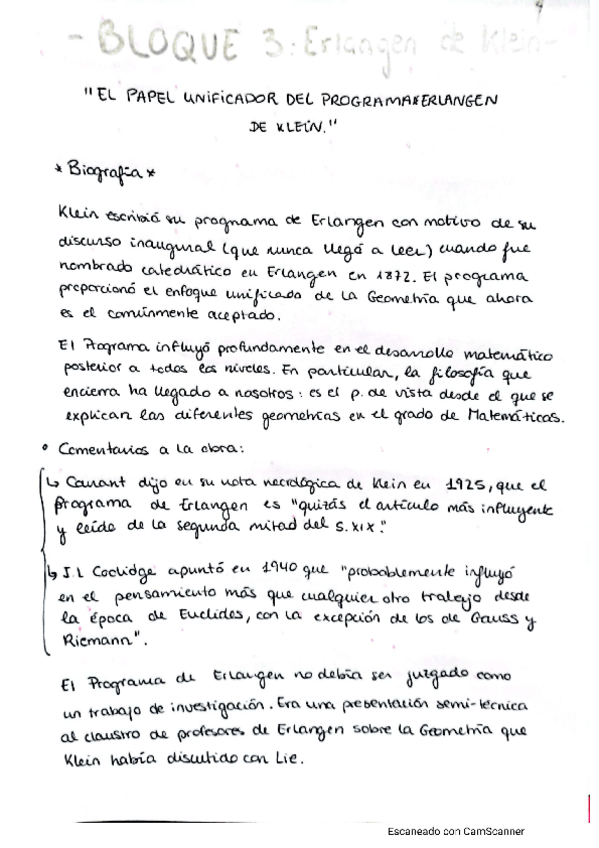 4
- BLOQUE 3: Erlangen de Klein-
"EL PAPEL UNIFICADOR DEL PROGRAMA ERLANGEN
DE KLEIN."
* Biografía *
Klein escribió su programa de Erlangen con motivo de su
discurso inaugural (que nunca llegó a leer) cuando fue
nombrado catedrático en Erlangen en 1872. El programa
proporcionó el enfoque unificado de la Geometría que ahora
es el comúnmente aceptado.
El Programa influyó profundamente en el desarrollo matemático
posterior a todos los niveles. En particular, la filosofía que
encierra ha llegado a nosotros: es el p. de vista desde el que se
explican las diferentes geometrías en el grado de Matemáticas.
• Comentarios a la obra:
↳ Courant dijo en su nota necrológica de Klein en 1925, que el
Programa de Erlangen es "quizás el artículo más influyente
y leído de la segunda mitad del s. XIX."
↳ J.L Coolidge apuntó en 1940 que "probablemente influyó
en el pensamiento más que cualquier otro trabajo desde
la época de Euclides, con la excepción de los de Gauss y
Riemann".
El Programa de Erlangen no debía ser juzgado como
un trabajo de investigación. Era una presentación semi-técnica
al claustro de profesores de Erlangen sobre la Geometría que
Klein había discutido con Lie.
Escaneado con CamScanner